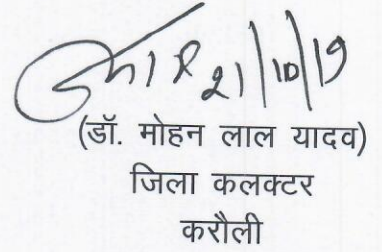 21/10/19
(डॉ. मोहन लाल यादव)
जिला कलक्टर
करौली